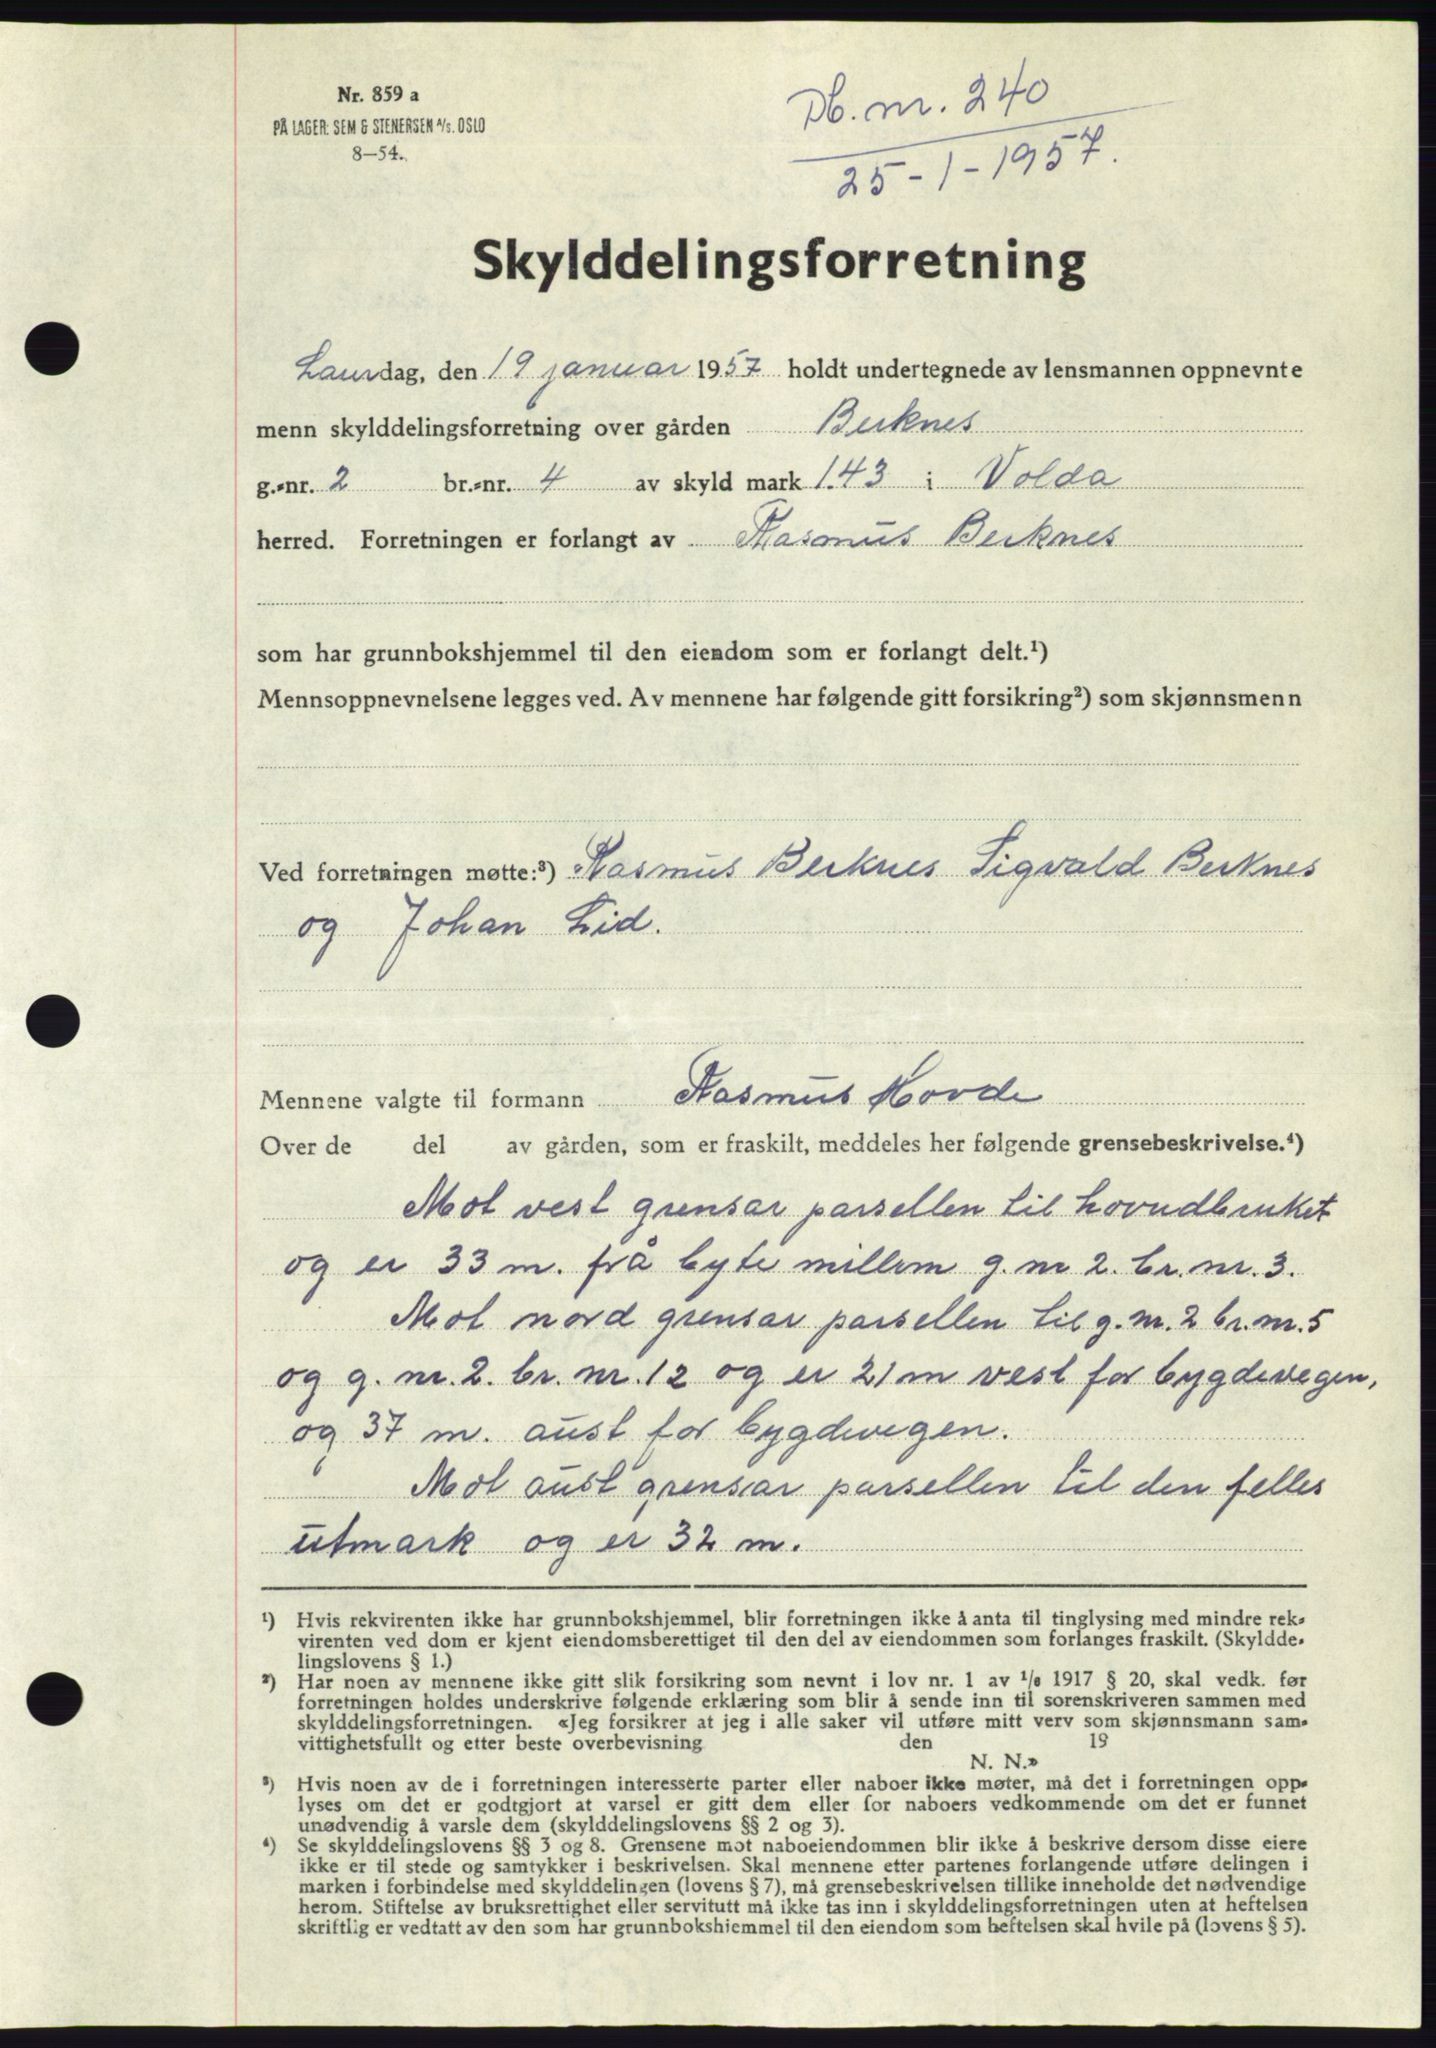 Nr. 859 a
PÅ LAGER: SEM & STENERSEN A/S. OSLO
8—54.
Db. nr. 240
25-1-1957.
Skylddelingsforretning
Laurdag, den 19 januar 1957 holdt undertegnede av lensmannen oppnevnte
menn skylddelingsforretning over gården Berknes
g.-nr. 2 br.-nr. 4 av skyld mark 1.43 i Volda
herred. Forretningen er forlangt av Rasmus Berknes
som har grunnbokshjemmel til den eiendom som er forlangt delt.¹)
Mennsoppnevnelsene legges ved. Av mennene har følgende gitt forsikring²) som skjønnsmenn
Ved forretningen møtte:³) Rasmus Berknes Sigvald Berknes
og Johan Lid.
Mennene valgte til formann Rasmus Hovde
Over de del av gården, som er fraskilt, meddeles her følgende grensebeskrivelse.⁴)
Mot vest grensar parsellen til hovudbruket
og er 33 m. frå byte millom g. nr 2. br. nr. 3.
Mot nord grensar parsellen til g. nr. 2 br. nr. 5
og g. nr. 2. br. nr. 12 og er 21 m vest for bygdevegen,
og 37 m. aust for bygdevegen.
Mot aust grensar parsellen til den felles
utmark og er 32 m.
¹) Hvis rekvirenten ikke har grunnbokshjemmel, blir forretningen ikke å anta til tinglysing med mindre rek-
virenten ved dom er kjent eiendomsberettiget til den del av eiendommen som forlanges fraskilt. (Skyldde-
lingslovens § 1.)
²) Har noen av mennene ikke gitt slik forsikring som nevnt i lov nr. 1 av 1/6 1917 § 20, skal vedk. før
forretningen holdes underskrive følgende erklæring som blir å sende inn til sorenskriveren sammen med
skylddelingsforretningen. «Jeg forsikrer at jeg i alle saker vil utføre mitt verv som skjønnsmann sam-
vittighetsfullt og etter beste overbevisning den 19
N. N.»
³) Hvis noen av de i forretningen interesserte parter eller naboer ikke møter, må det i forretningen opp-
lyses om det er godtgjort at varsel er gitt dem eller for naboers vedkommende om det er funnet
unødvendig å varsle dem (skylddelingslovens §§ 2 og 3).
⁴) Se skylddelingslovens §§ 3 og 8. Grensene mot naboeiendommen blir ikke å beskrive dersom disse eiere
ikke er til stede og samtykker i beskrivelsen. Skal mennene etter partenes forlangende utføre delingen i
marken i forbindelse med skylddelingen (lovens § 7), må grensebeskrivelsen tillike inneholde det nødvendige
herom. Stiftelse av bruksrettighet eller servitutt må ikke tas inn i skylddelingsforretningen uten at heftelsen
skriftlig er vedtatt av den som har grunnbokshjemmel til den eiendom som heftelsen skal hvile på (lovens § 5).